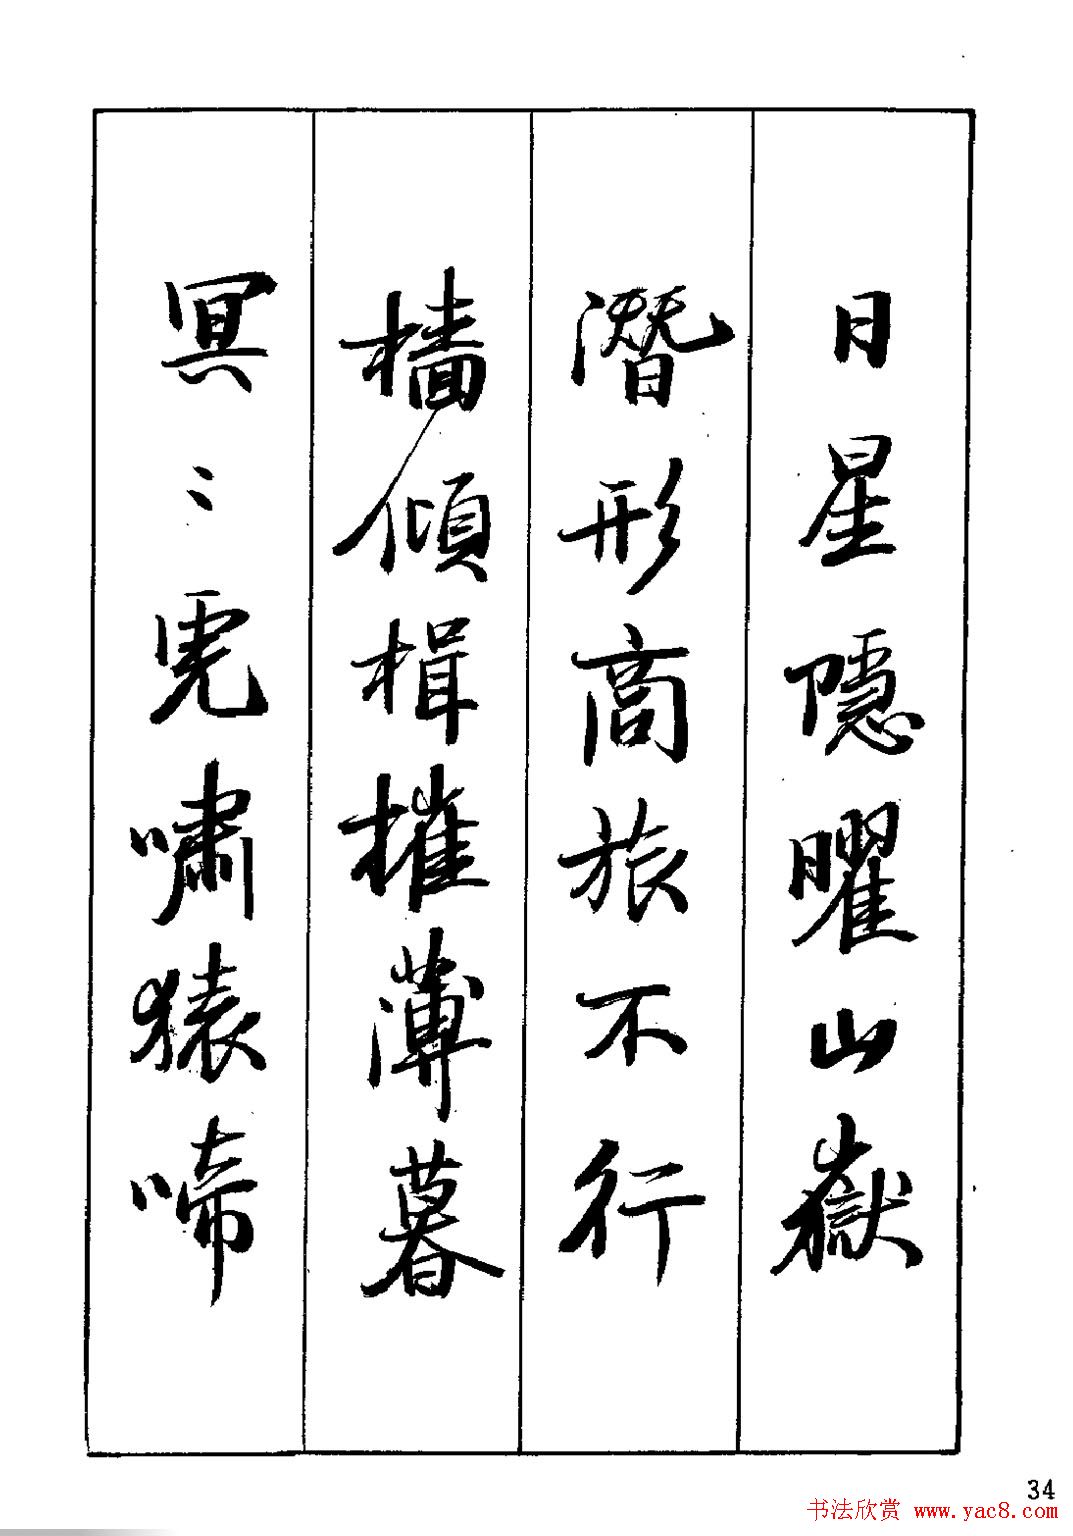 日星隱曜山嶽
潛形商旅不行
檣傾楫摧薄暮
冥〻虎嘯猿啼
34
书法欣赏 www.yac8.com